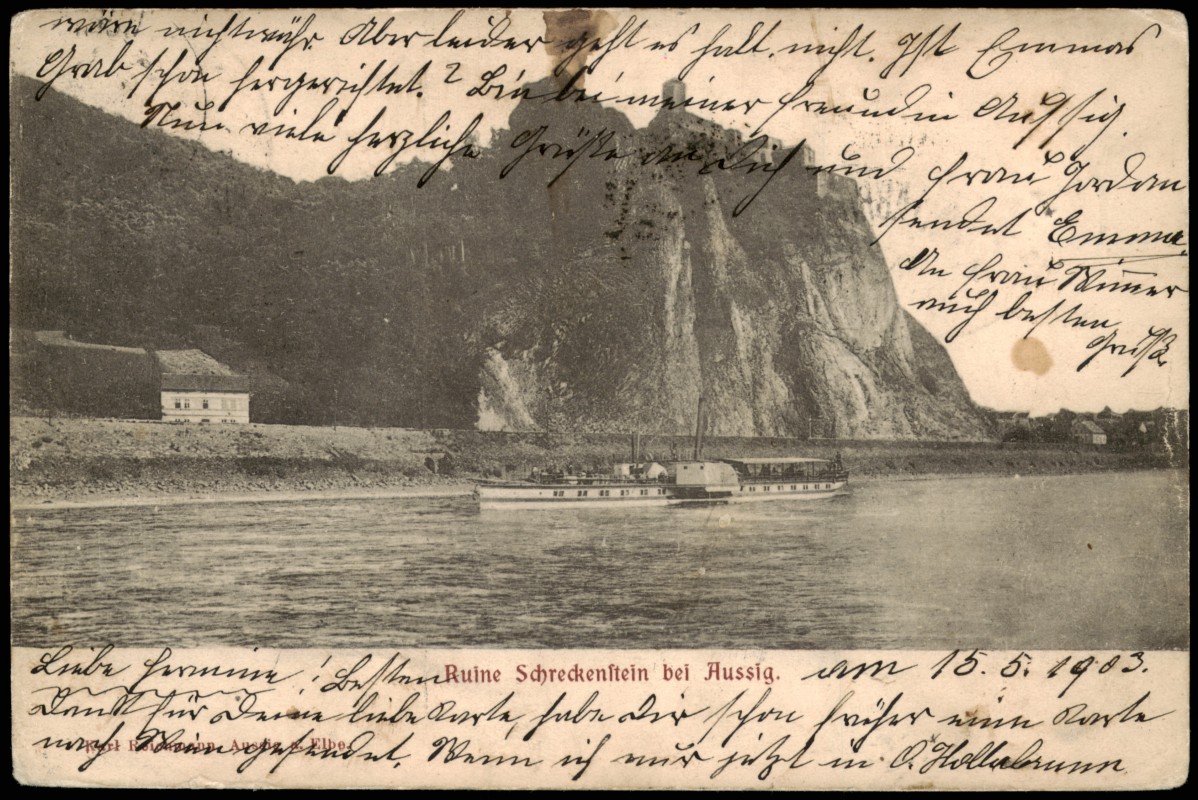 wäre nichtwahr. Aber leider geht es halt nicht. Ist Emmas
Grab schon hergerichtet? Bin bei meiner Freundin Aussig.
Nun viele herzliche Grüße an Dich und Frau Jordan
sendet Emma
An Frau Wimer
auch besten
Gruß
Ruine Schreckenstein bei Aussig.
am 15. 5. 1903.
Liebe Hermine! Besten
Dank für Deine liebe Karte, habe Dir schon früher eine Karte
nach Wien gesendet. Wenn ich nur jetzt in O. Hollabrunn
Karl Reichmann, Aussig a. Elbe.